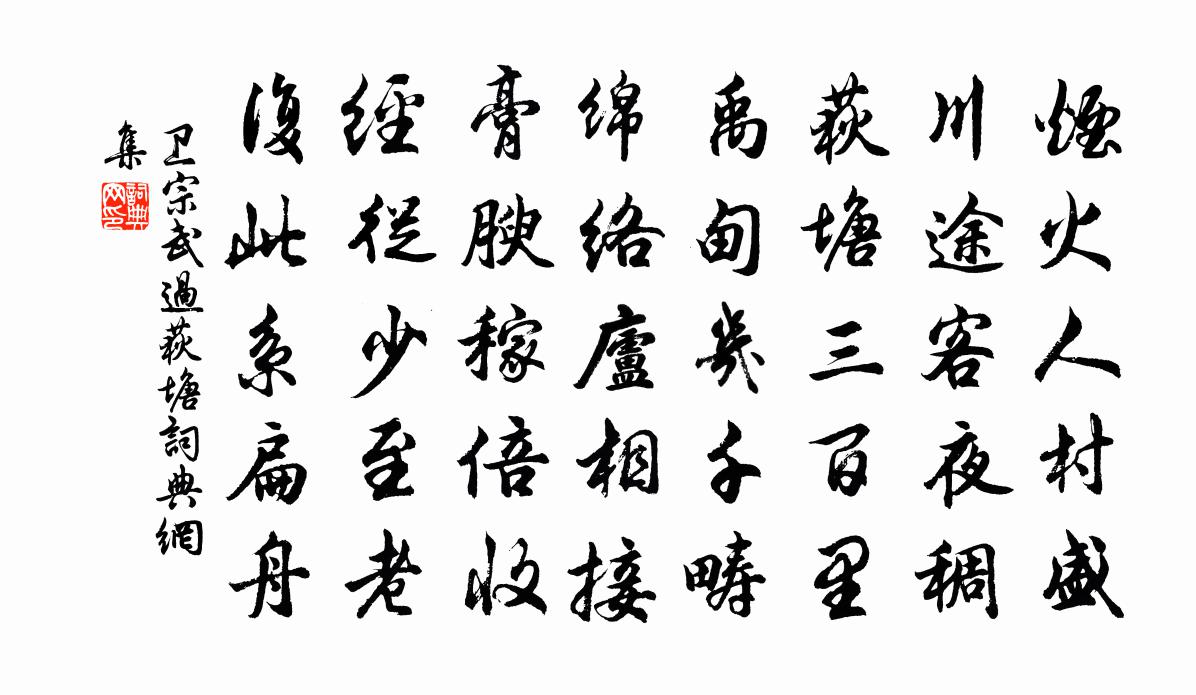 煙火人村盛
川途客夜稠
荻塘三百里
禹甸幾千疇
綿絡廬相接
膏腴稼倍收
經從少至老
復此系扁舟
卫宗武過荻塘詞典網
集
詞典網印